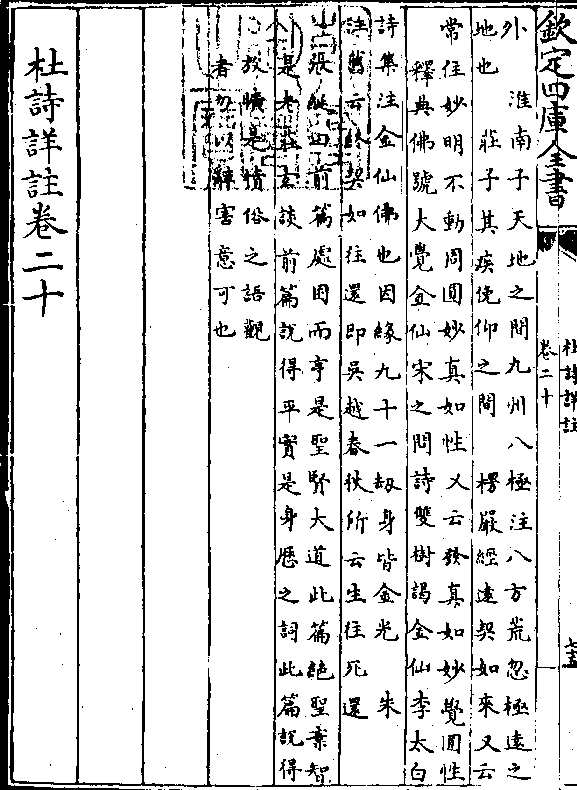 欽定四庫全書
杜詩詳註
卷二十
外　淮南子天地之間九州八極注八方荒忽極遠之
地也　莊子其疾俛仰之間　楞嚴經遠契如來又云
常住妙明不動周圓妙真如性又云發真如妙覺圓性
釋典佛號大覺金仙宋之問詩雙樹謁金仙李太白
詩集注金仙佛也因緣九十一劫身皆金光　朱
註舊云終契如往還即吳越春秋所云生往死還
張綖曰前篇處困而亨是聖賢大道此篇絶聖棄智
是老莊玄談前篇說得平實是身歷之詞此篇說得
放曠是憤俗之語觀
者勿以辭害意可也
杜詩詳註卷二十